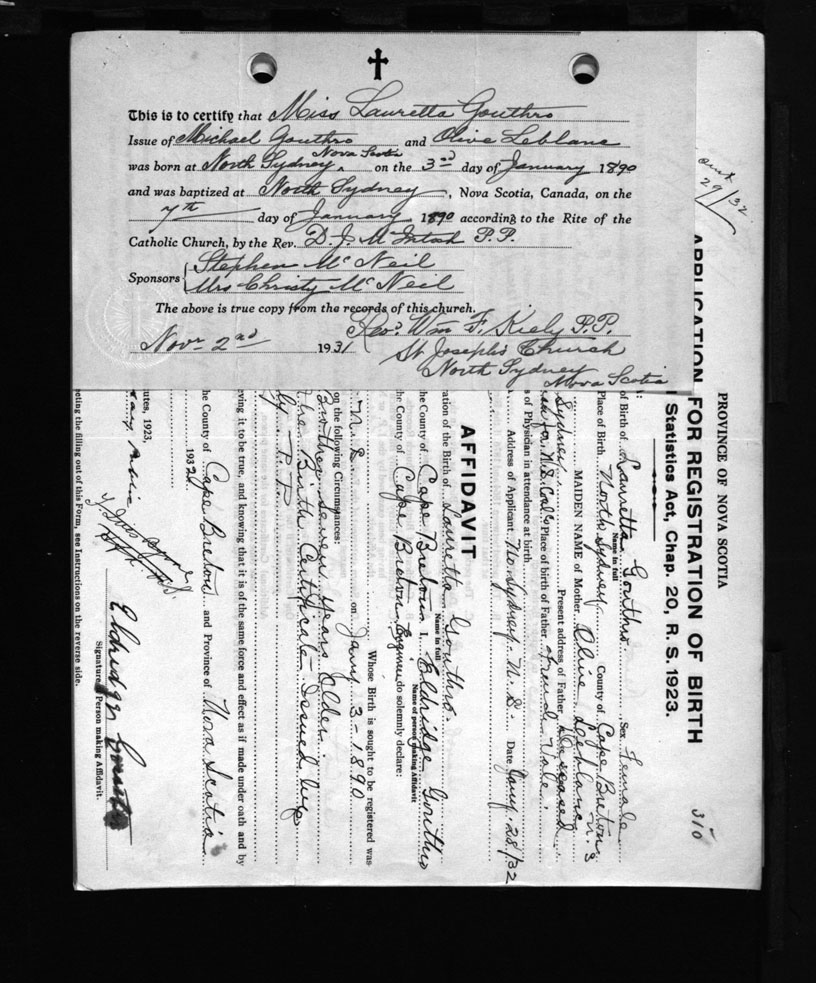 This is to certify that Miss Lauretta Gouthro
Issue of Michael Gouthro and Olive Leblanc
was born at North Sydney Nova Scotia on the 3rd day of January 1890
and was baptized at North Sydney, Nova Scotia, Canada, on the
7th day of January 1890 according to the Rite of the
Catholic Church, by the Rev. D. J. McIntosh P.P.
Sponsors Stephen McNeil
Mrs Christy McNeil
The above is true copy from the records of this church.
Rev. Wm F. Kiely P.P.
Novr 2nd 1931
St Joseph's Church
North Sydney
Nova Scotia
29/32.
PROVINCE OF NOVA SCOTIA
310
APPLICATION FOR REGISTRATION OF BIRTH
Statistics Act, Chap. 20, R. S. 1923.
of Birth of Lauretta Gouthro Sex Female
Name in full
Place of Birth North Sydney County of Cape Breton N.S
MAIDEN NAME of Mother Olive Leblanc
Sydney Present address of Father Deceased
Place of birth of Father French Vale.
of Physician in attendance at birth
Address of Applicant No. Sydney. N. S. Date Jany. 28/32
AFFIDAVIT
ration of the Birth of Lauretta Gouthro.
Name in full
he County of Cape Breton I, Eldridge Gouthro
Name of person making Affidavit
he County of Cape Breton do solemnly declare:
Whose Birth is sought to be registered was
N. S. on Jany 3-1890
on the following Circumstances:
Brother seven years older.
The Birth Certificate Issued by
P.P.
eving it to be true, and knowing that it is of the same force and effect as if made under oath and by
he County of Cape Breton and Province of Nova Scotia
1932
utes, 1923,
Eldridge Gouthro
Signature of Person making Affidavit.
eting the filling out of this Form, see Instructions on the reverse side.